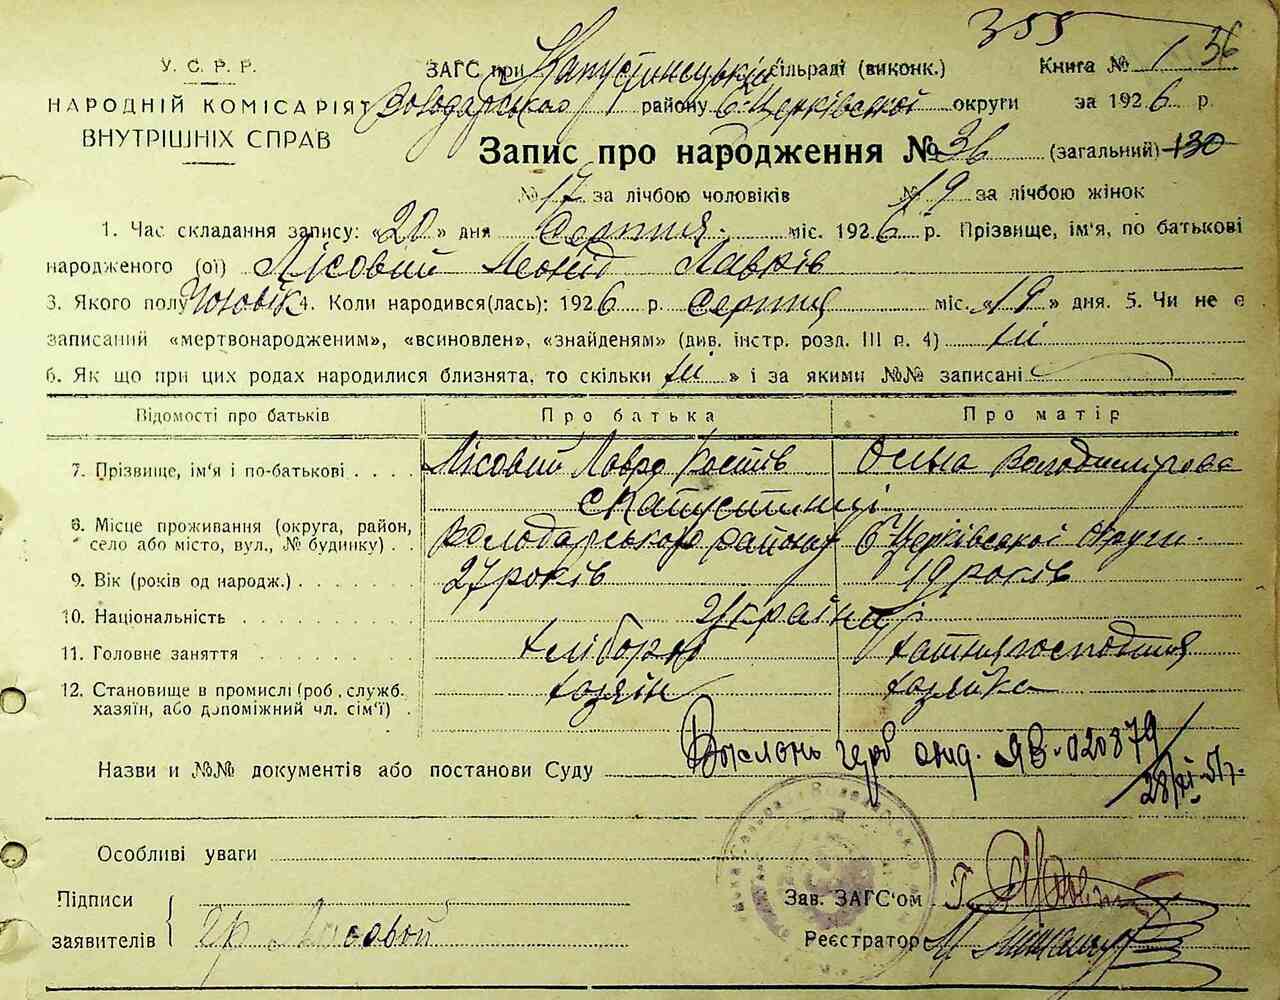 355
У. С. Р. Р. ЗАГС при Капустинській сільраді (виконк.) Книга № 1 36
НАРОДНІЙ КОМІСАРІЯТ Володарського району Б-Церківської округи за 1926 р.
ВНУТРІШНІХ СПРАВ
Запис про народження № 36 (загальний) 130
№ 17 за лічбою чоловіків № 19 за лічбою жінок
1. Час складання запису: «20» дня Серпня міс. 1926 р. Прізвище, ім'я, по батькові
народженого (ої) Лісовий Леонід Лавків
3. Якого полу Чоловік 4. Коли народився(лась): 1926 р. серпня міс. «19» дня. 5. Чи не є
записаний «мертвонародженим», «всиновлен», «знайденям» (див. інстр. розд. III р. 4) ні
6. Як що при цих родах народилися близнята, то скільки ні » і за якими №№ записані
Відомості про батьків Про батька Про матір
7. Прізвище, ім'я і по-батькові Лісовий Лавро Костів Олена Володимирова
с Капустинці
8. Місце проживання (округа, район, село або місто, вул., № будинку) Володарського району Б Церківської Округи
9. Вік (років од народж.) 27 років 19 років
10. Національність Україн
11. Головне заняття хлібороб хатня господиня
12. Становище в промислі (роб. служб. хазяїн, або допоміжний чл. сім'ї) хозяїн хозяйка
Назви и №№ документів або постанови Суду герб ЯВ-020879
28/XI-51 г.
Особливі уваги
Підписи
заявителів гр Лісовой
Зав. ЗАГС'ом
Реєстратор